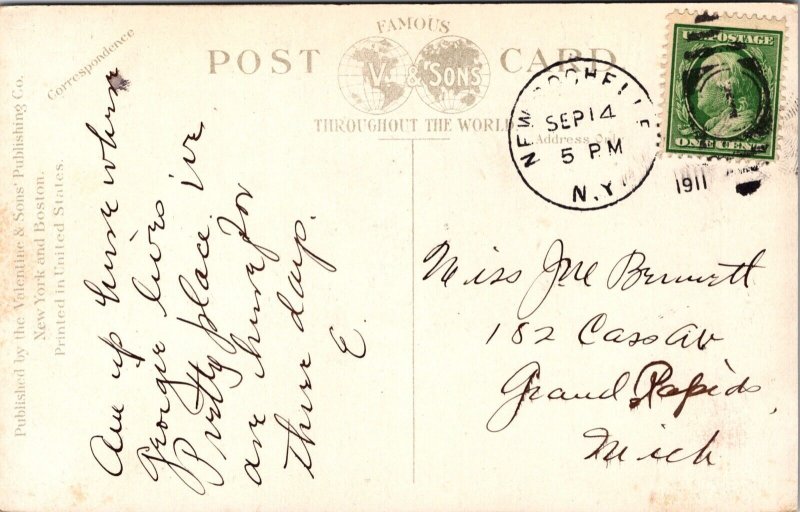 FAMOUS
POST CARD
V. & SONS
THROUGHOUT THE WORLD
Correspondence
Address Only
Published by the Valentine & Sons' Publishing Co.
New York and Boston.
Printed in United States.
NEW ROCHELLE
SEP 14
5 PM
N.Y.
1911
U.S. POSTAGE
ONE CENT
Am up here where
George lives
Pretty place. We
are here for
three days.
E.
Miss J M Bennett
182 Cass Av
Grand Rapids,
Mich